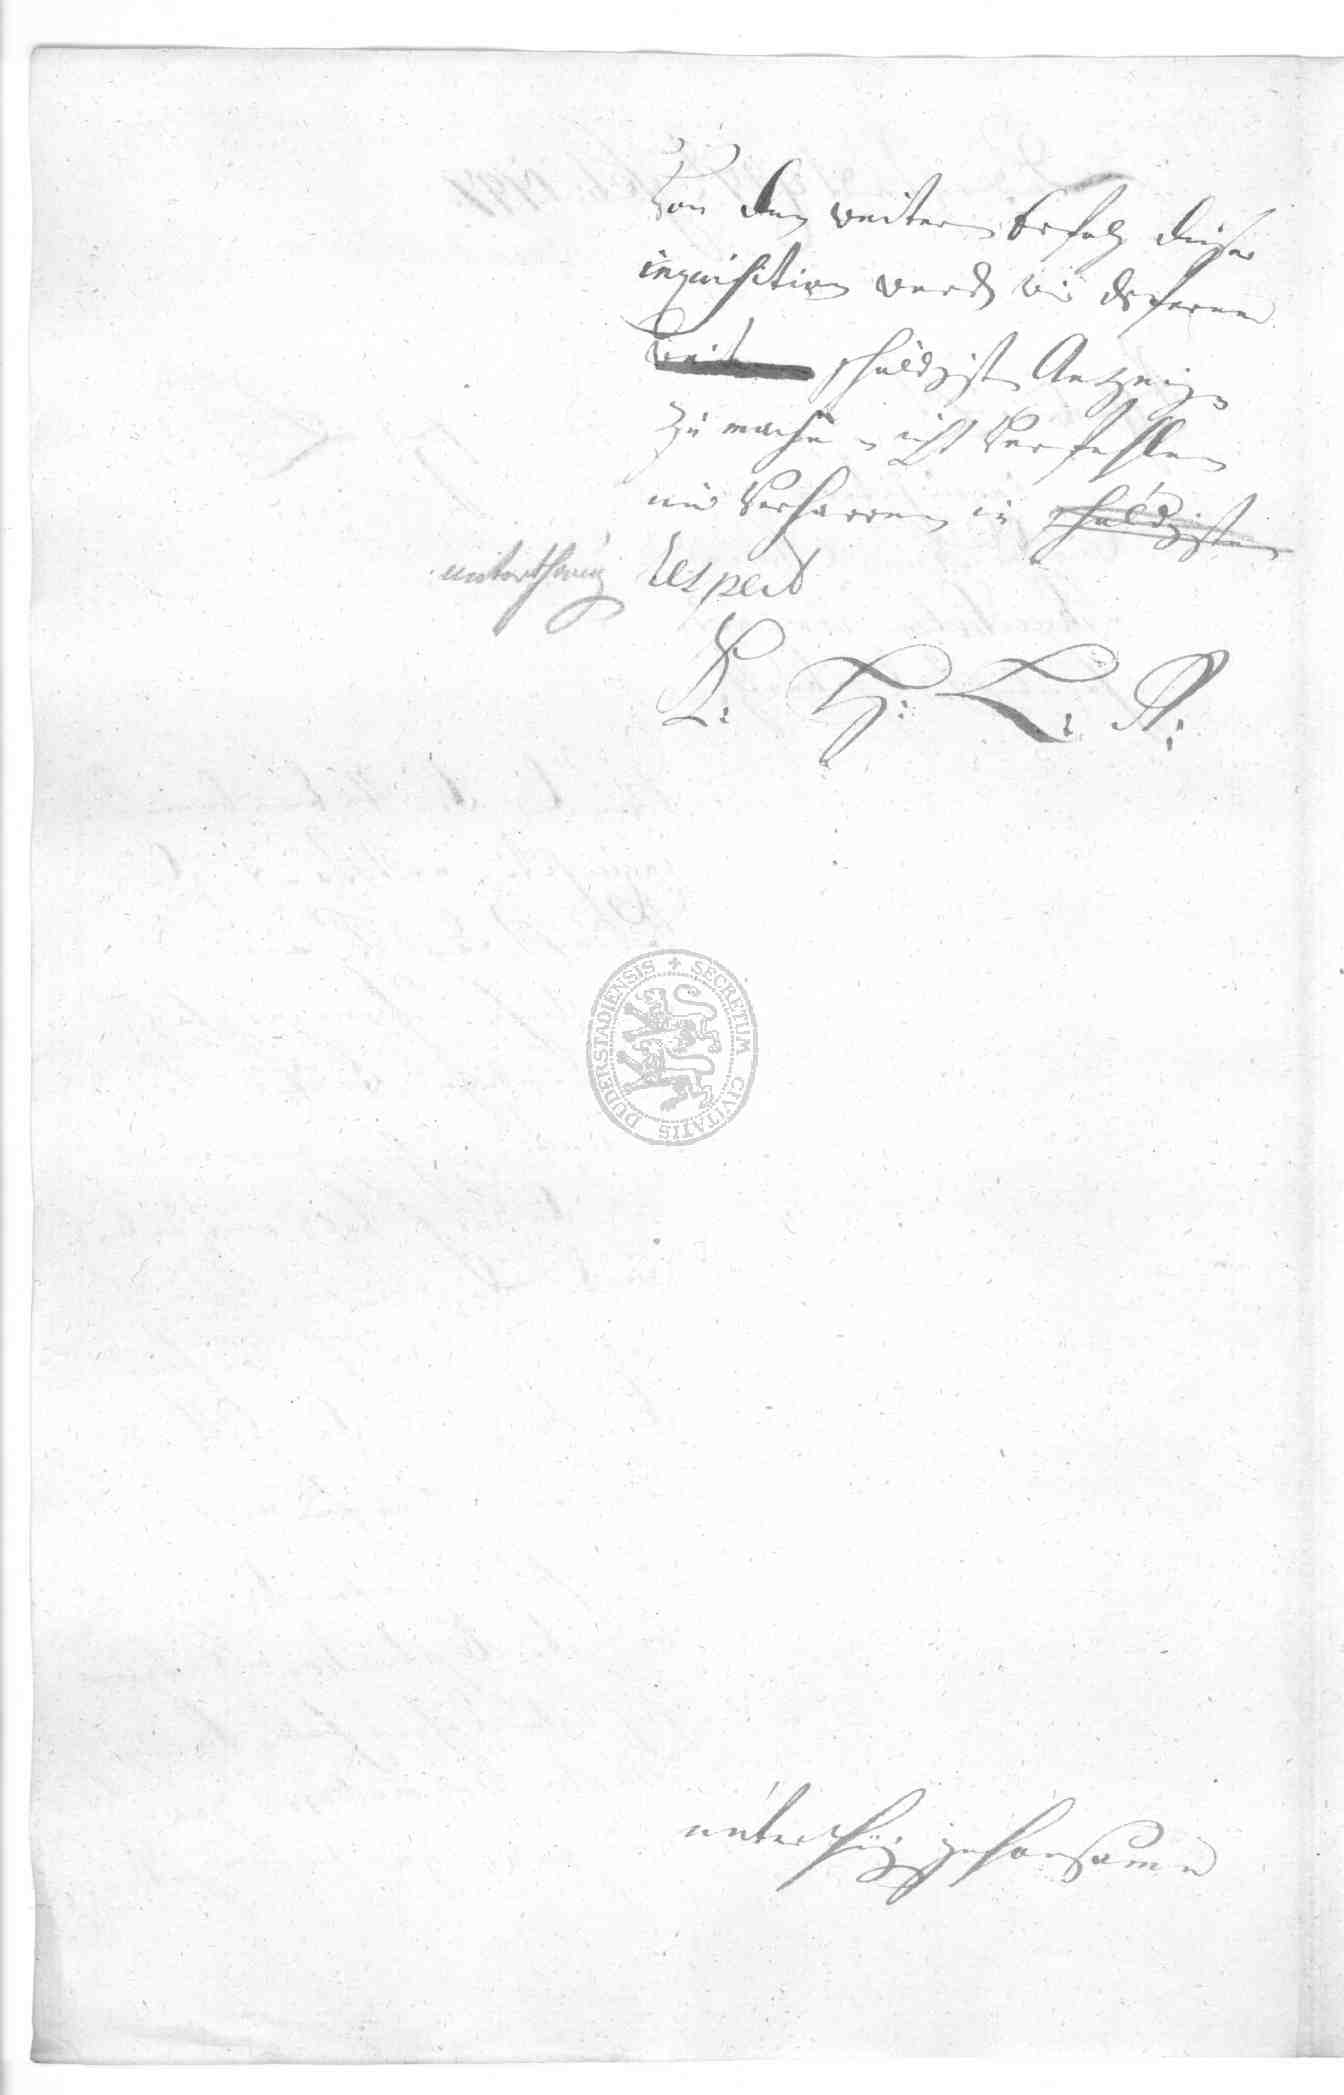 Von dem weitern Erfolg dieser
inquisition werden wir deferner
weit schuldigste Anzeige
zu machen nicht Verfehlen
und Verharren in schuldigsten
unterthänig respect
E. H. E. R.
SECRETUM CIVITATIS DUDERSTADIENSIS
unterthänig gehorsame